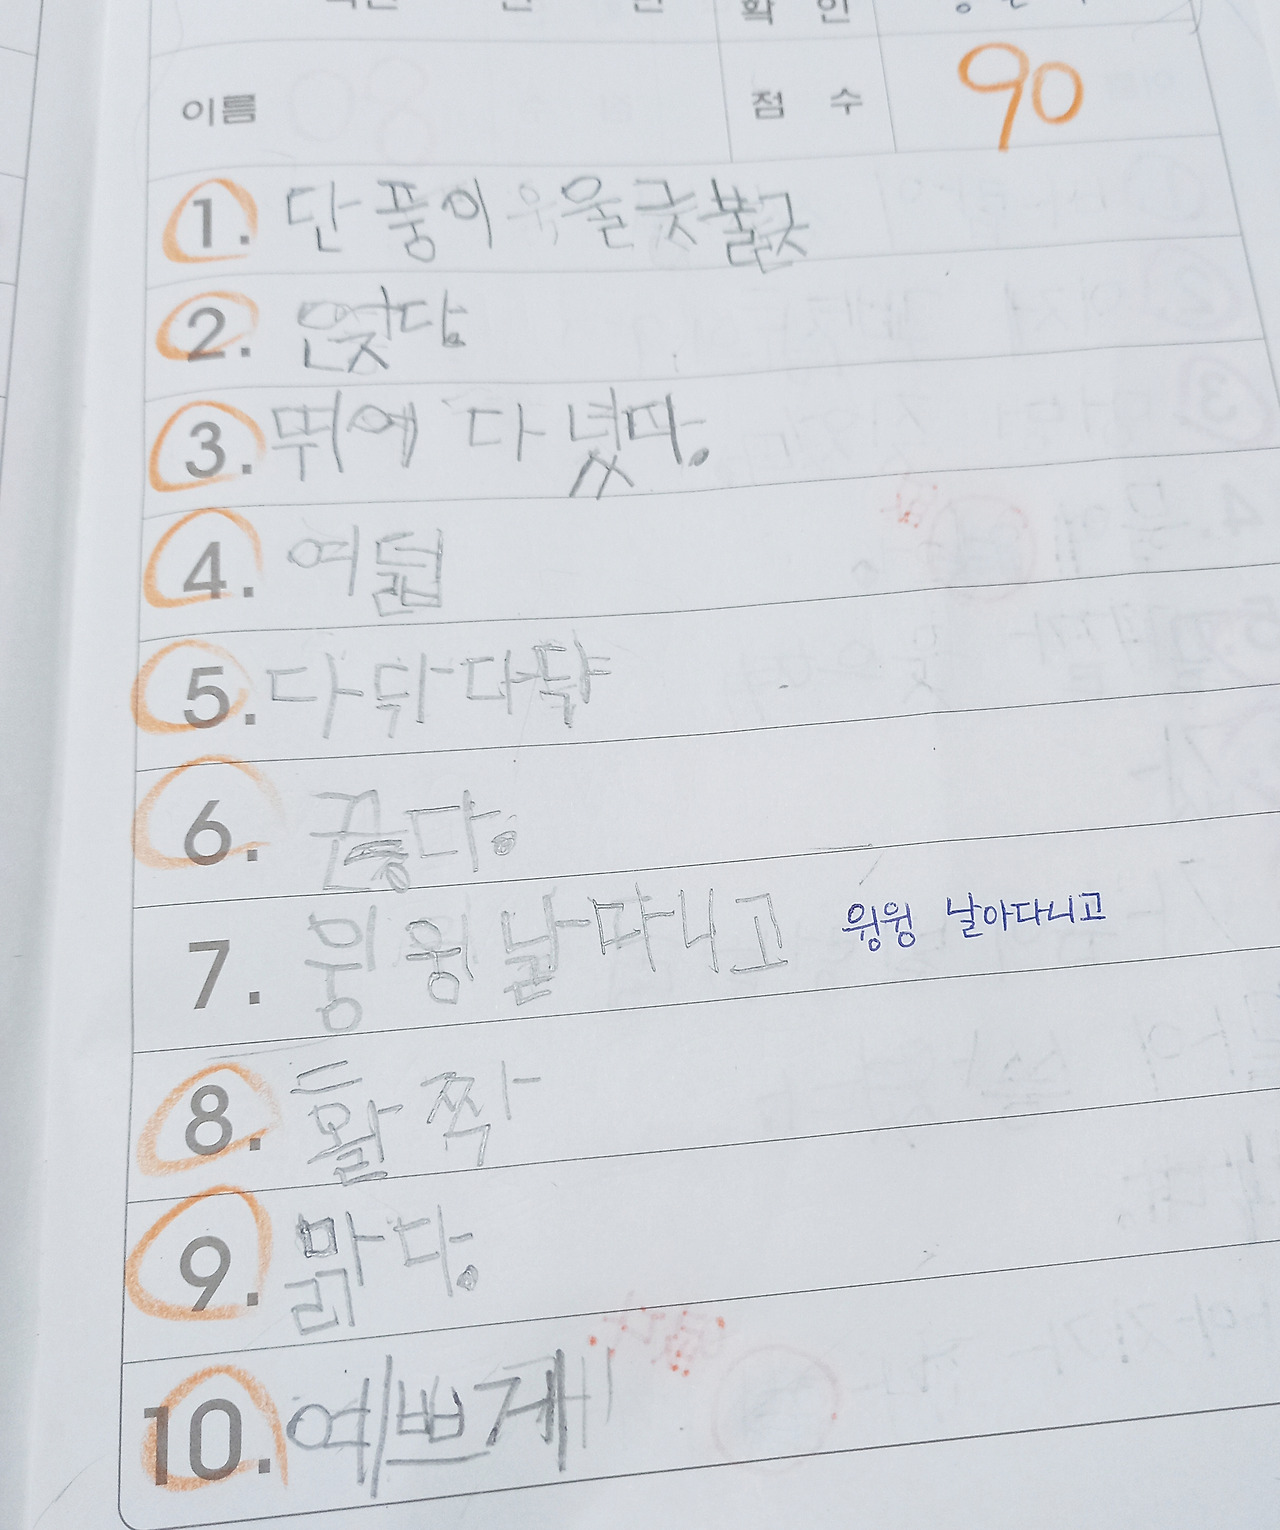 확 인
이름 점 수 90
1. 단풍이 울긋불긋
2. 앉다.
3. 뛰어 다녔다.
4. 여덟
5. 다닥다닥
6. 끊다.
7. 윙윙 날다니고 윙윙 날아다니고
8. 활짝
9. 맑다.
10. 예쁘게